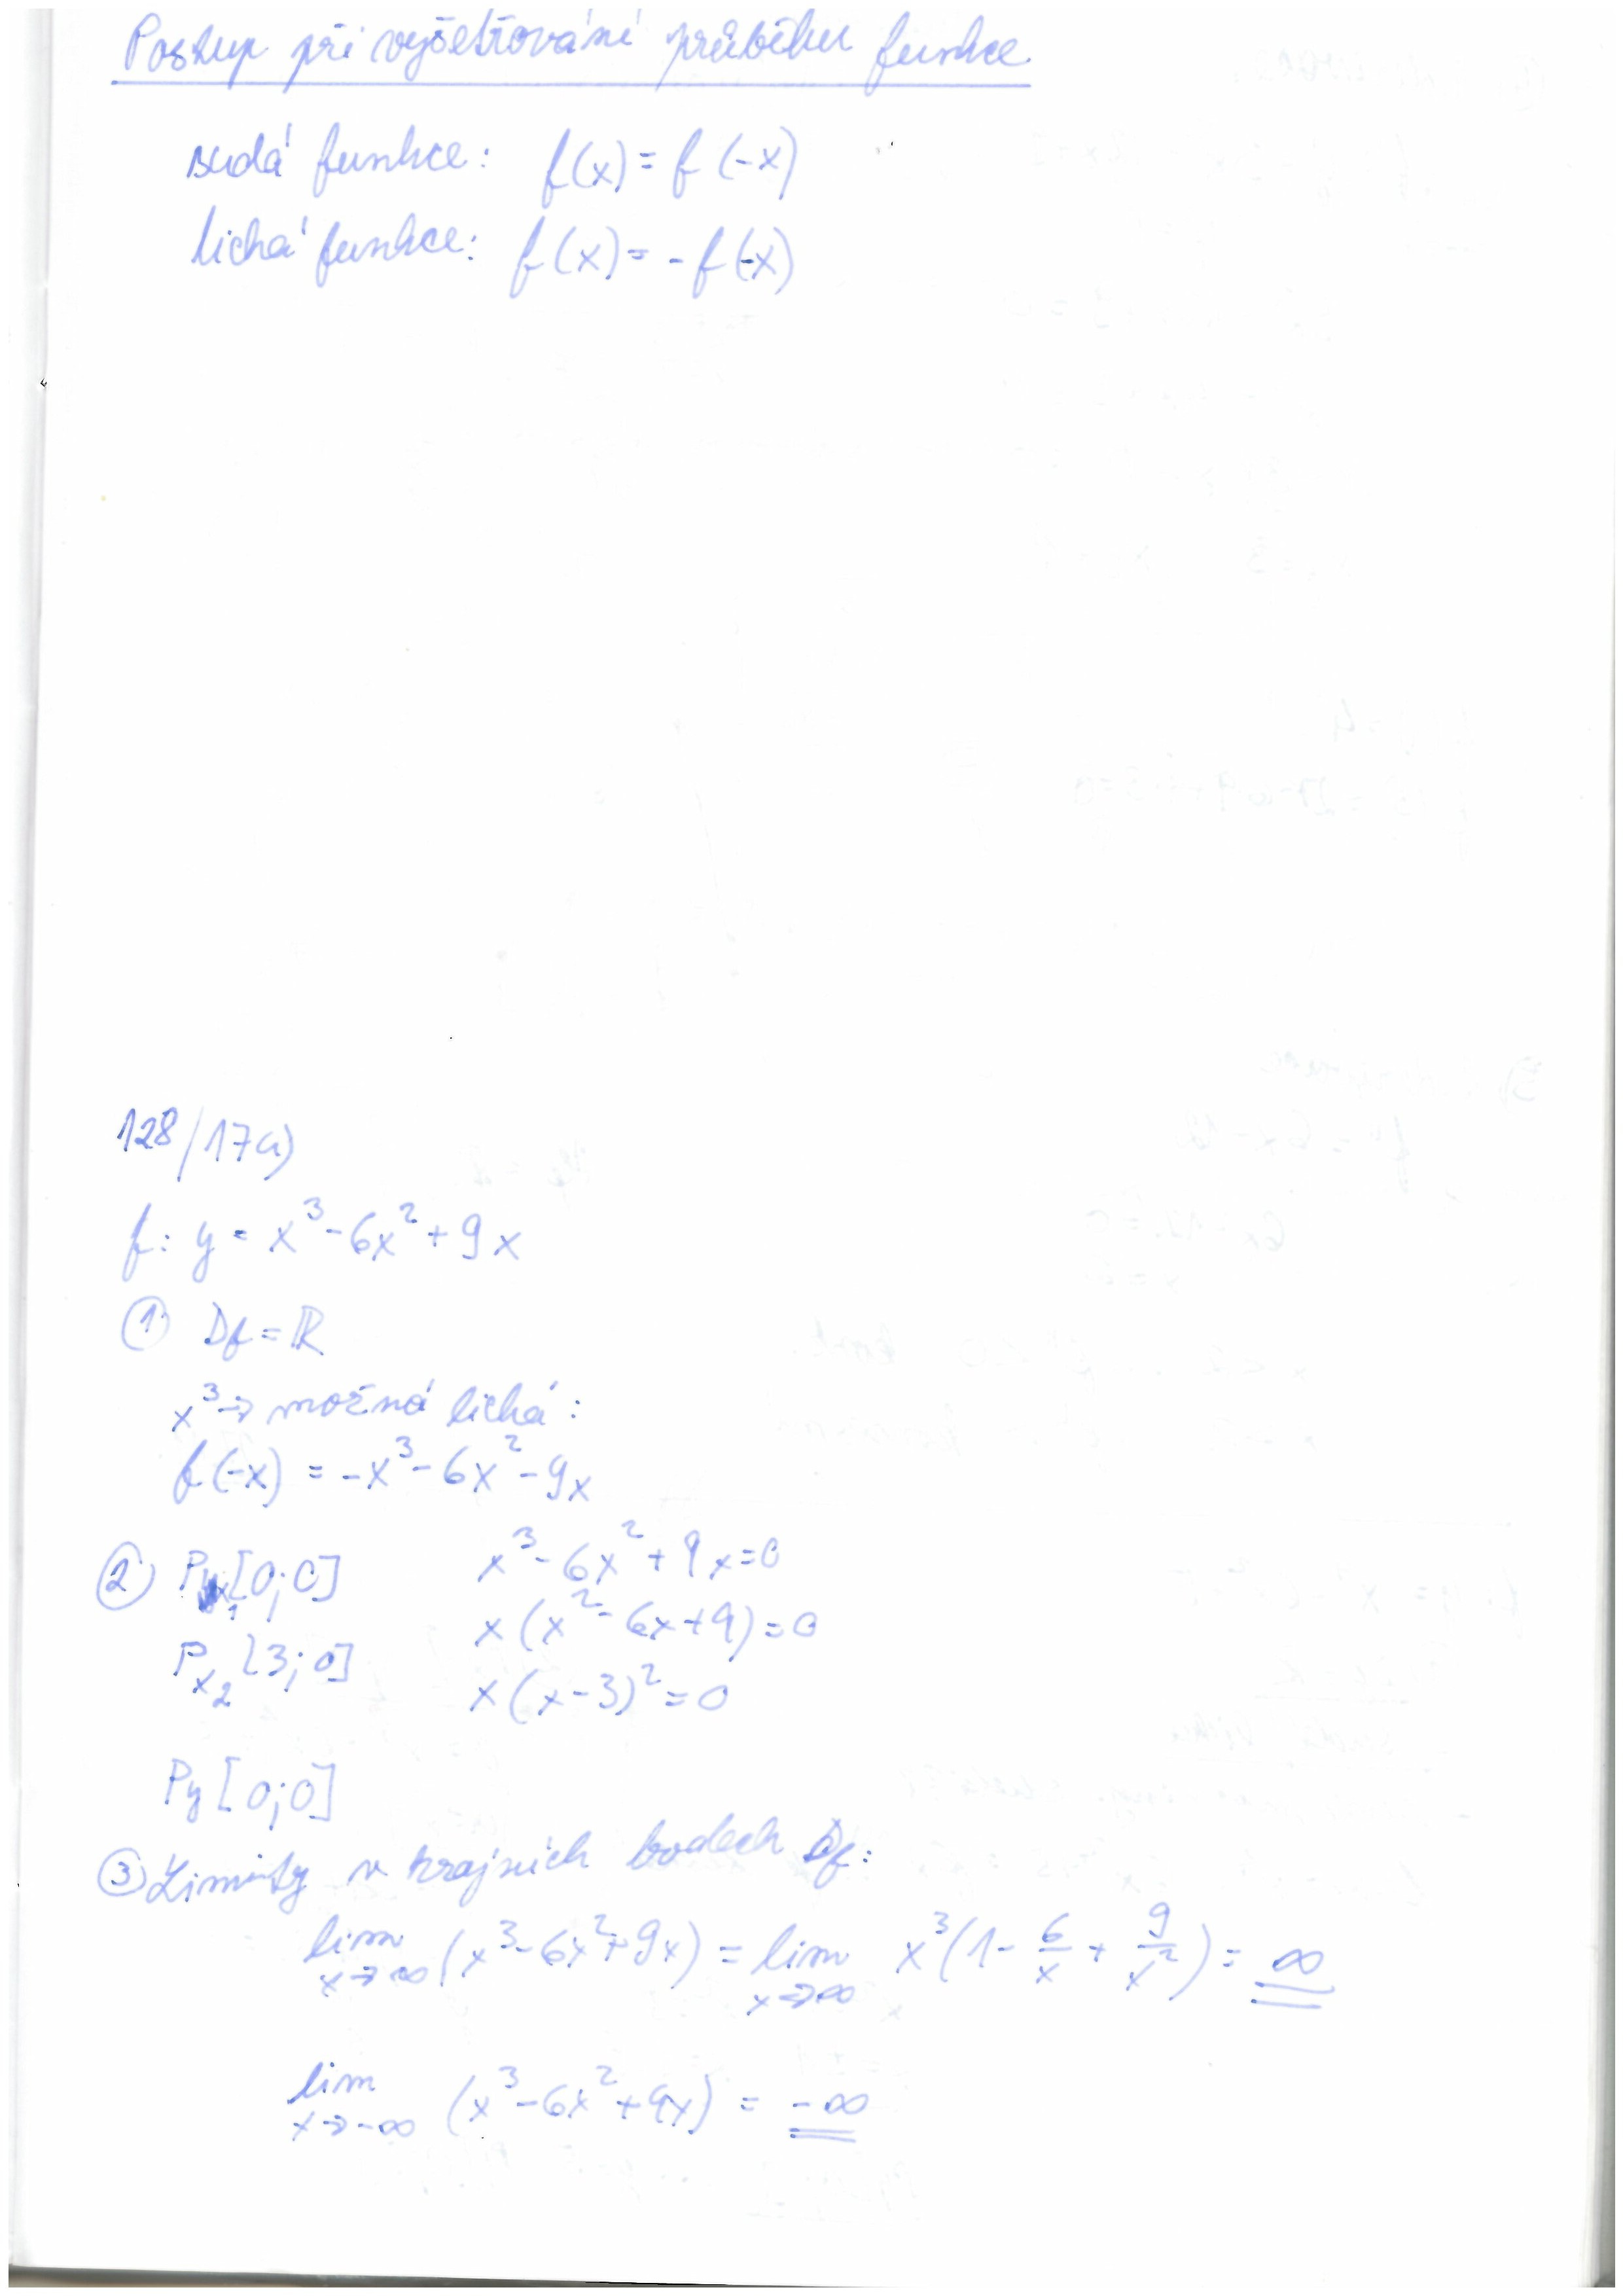 Postup při vyšetřování průběhu funkce
sudá funkce: f(x) = f(-x)
lichá funkce: f(x) = -f(-x)
128/17a)
f: y = x³ - 6x² + 9x
① Df = ℝ
x³ → možná lichá:
f(-x) = -x³ - 6x² - 9x
② Px₁[0;0] x³ - 6x² + 9x = 0
x(x² - 6x + 9) = 0
Px₂[3;0] x(x-3)² = 0
Py[0;0]
③ Limity v krajních bodech Df:
lim x→∞ (x³ - 6x² + 9x) = lim x→∞ x³(1 - 6/x + 9/x²) = ∞
lim x→-∞ (x³ - 6x² + 9x) = -∞